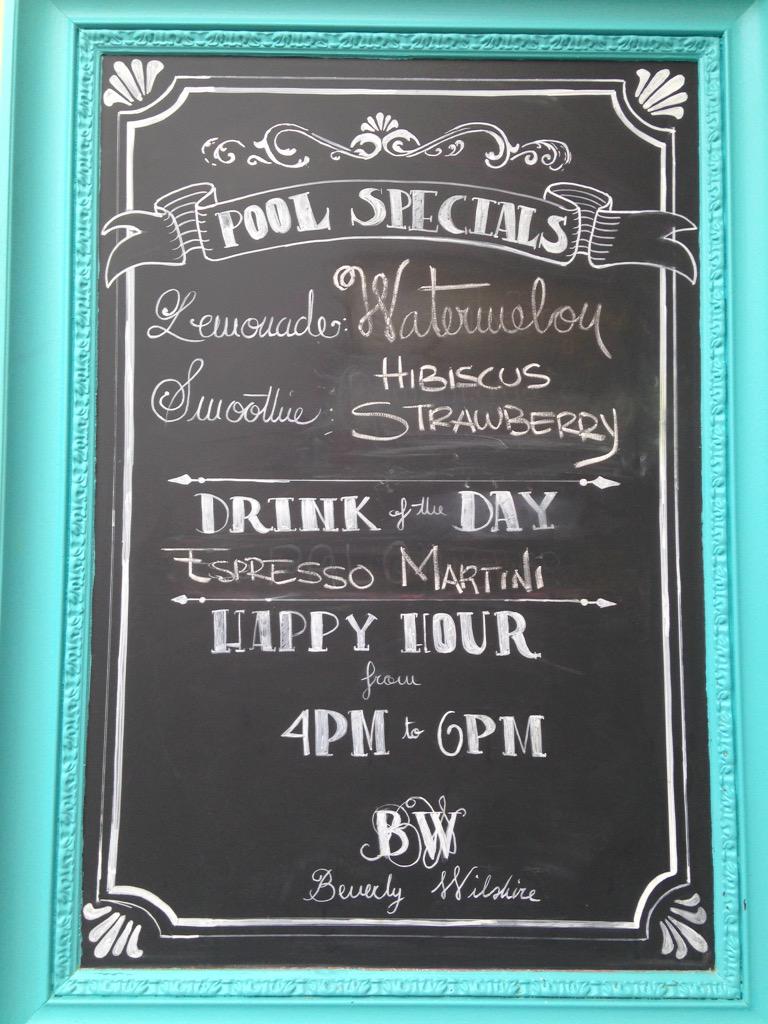 POOL SPECIALS
Lemonade: Watermelon
HIBISCUS
Smoothie: STRAWBERRY
DRINK of the DAY
ESPRESSO MARTINI
HAPPY HOUR
from
4PM to 6PM
BW
Beverly Wilshire